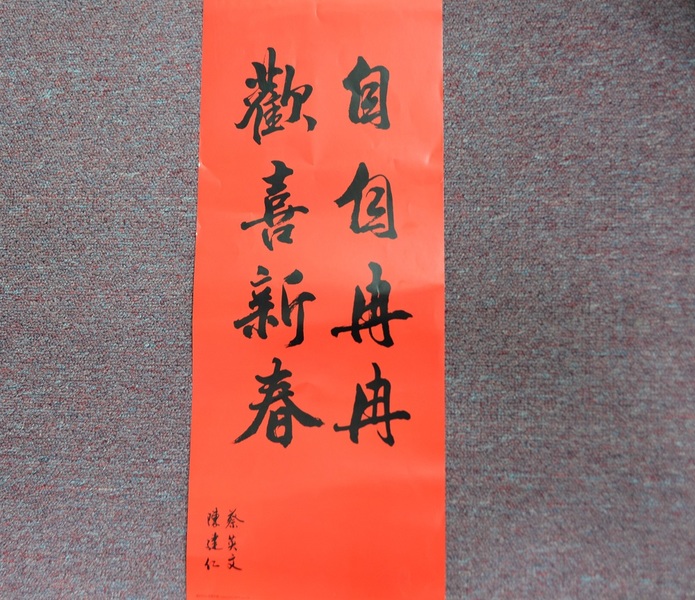 自自冉冉
歡喜新春
蔡英文
陳建仁